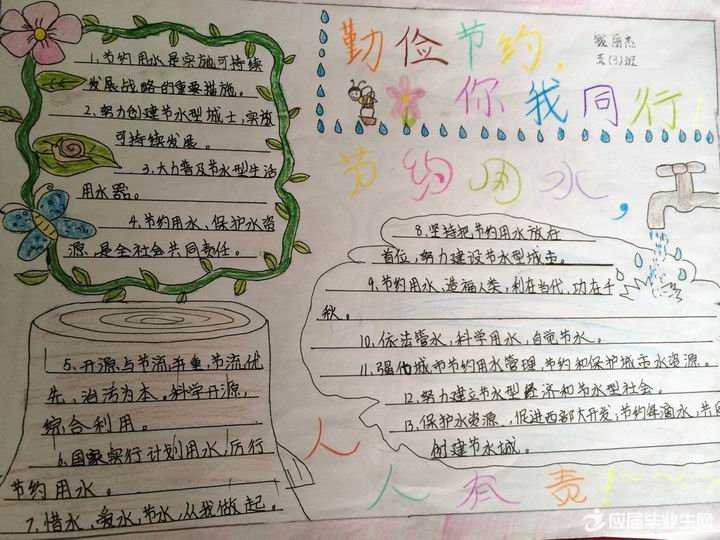 勤俭节约，
你我同行！
五(3)班
节约用水，
1、节约用水是实施可持续
发展战略的重要措施。
2、努力创建节水型城士，实施
可持续发展。
3、大力普及节水型生活
用水器。
4、节约用水、保护水资
源，是全社会共同责任。
5、开源与节流并重，节流优
先、治法为本。科学开源，
综合利用。
6、国家实行计划用水，厉行
节约用水。
7、惜水、爱水、节水，从我做起。
8、坚持把节约用水放在
首位，努力建设节水型城市。
9、节约用水、造福人类，利在当代，功在千
秋。
10、依法管水，科学用水，自觉节水。
11、强化城市节约用水管理，节约和保护城市水资源。
12、努力建立节水型经济和节水型社会。
13、保护水资源，促进西部大开发，节约每滴水，共
创建节水城。
人人有责！
应届毕业生网